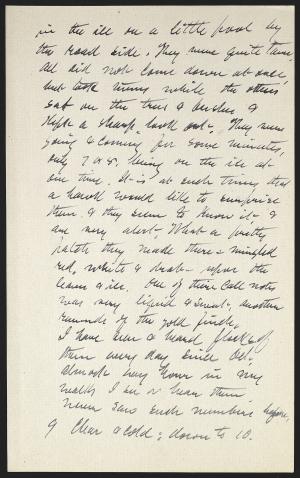 in the ice on a little pool by
the road side. They were quite tame.
All did not come down at once,
but took turns while the others
sat on the trees & bushes &
kept a sharp look out. They were
going & coming for some minutes,
only 7 or 8, being on the ice at
one time. It is at such times that
a hawk would like to surprise
them & they seem to know it &
are very alert. What a pretty
patch they made there – mingled
red, white & drab – upon the
leaves & ice. One of their call notes
was very liquid & sweet, another
reminds of the gold finch.
I have seen or heard flocks of
them every day since Oct.
almost every hour in my
walks I see or hear them.
Never saw such numbers before.
9 Clear & cold; down to 10.